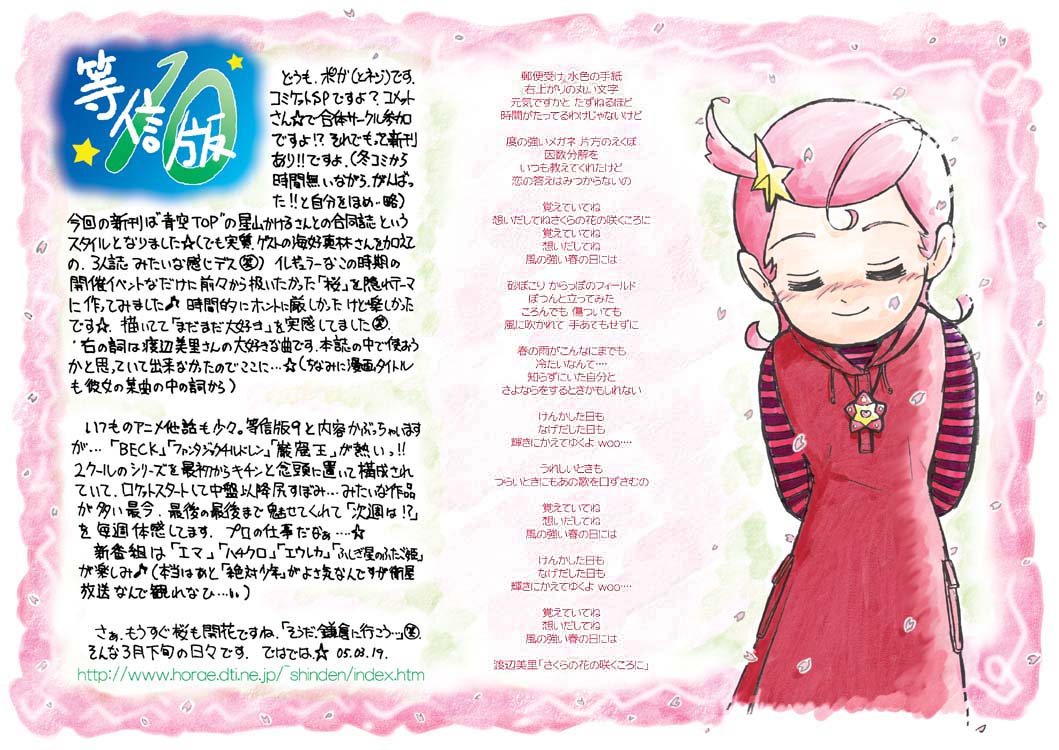 等信版10
どうも、ポガ(とネジ)です。
コミケットSPですよ？コメット
さん☆で合体サークル参加
ですよ!?それでもって新刊
あり!!ですよ。(冬コミから
時間無いながら、がんばっ
た!!と自分をほめ…略)
今回の新刊は"青空TOP"の星山かけるさんとの合同誌という
スタイルとなりました☆(でも実質ゲストの海好真林さんを加えて
の、3人誌みたいな感じデス(笑))イレギュラーなこの時期の
開催イベントなだけに前々から扱いたかった「桜」を隠れテーマ
に作ってみました♪時間的にホントに厳しかったけど楽しかった
です☆。描いてて「まだまだ大好き」を実感してました(笑)。
右の詞は渡辺美里さんの大好きな曲です。本誌の中で使おう
かと思っていて出来なかったのでここに…☆(ちなみに漫画タイトル
も彼女の某曲の中の詞から)
いつものアニメ他話も少々。等信版9と内容かぶっちゃいます
が…「BECK」「ファンタジックチルドレン」「巌窟王」が熱いっ!!
2クールのシリーズを最初からキチンと念頭に置いて構成され
ていて、ロケットスタートして中盤以降尻すぼみ…みたいな作品
が多い最今、最後の最後まで魅せてくれて「次週は!?」
を毎週体感してます。プロの仕事だなぁ…☆
新番組は「エマ」「ハチクロ」「エウレカ」「ふしぎ星のふたご姫」
が楽しみ♪(本当はあと「絶対少年」がよさ気なんですが衛星
放送なんで観れなひ…。)
さぁ、もうすぐ桜も開花ですね。「そうだ、鎌倉に行こう…」(笑)
そんな3月下旬の日々です。ではでは。☆ 05.03.19.
http://www.horae.dti.ne.jp/~shinden/index.htm
郵便受け 水色の手紙
右上がりの丸い文字
元気ですかと たずねるほど
時間がたってるわけじゃないけど
度の強いメガネ 片方のえくぼ
因数分解を
いつも教えてくれたけど
恋の答えはみつからないの
覚えていてね
想いだしてねさくらの花の咲くころに
覚えていてね
想いだしてね
風の強い春の日には
砂ぼこり からっぽのフィールド
ぽつんと立ってみた
ころんでも 傷ついても
風に吹かれて 手あてもせずに
春の雨がこんなにまでも
冷たいなんて‥‥
知らずにいた自分と
さよならをするときかもしれない
けんかした日も
なげだした日も
輝きにかえてゆくよ woo‥‥
うれしいときも
つらいときにもあの歌を口ずさむの
覚えていてね
想いだしてね
風の強い春の日には
けんかした日も
なげだした日も
輝きにかえてゆくよ woo‥‥
覚えていてね
想いだしてね
風の強い春の日には
渡辺美里「さくらの花の咲くころに」